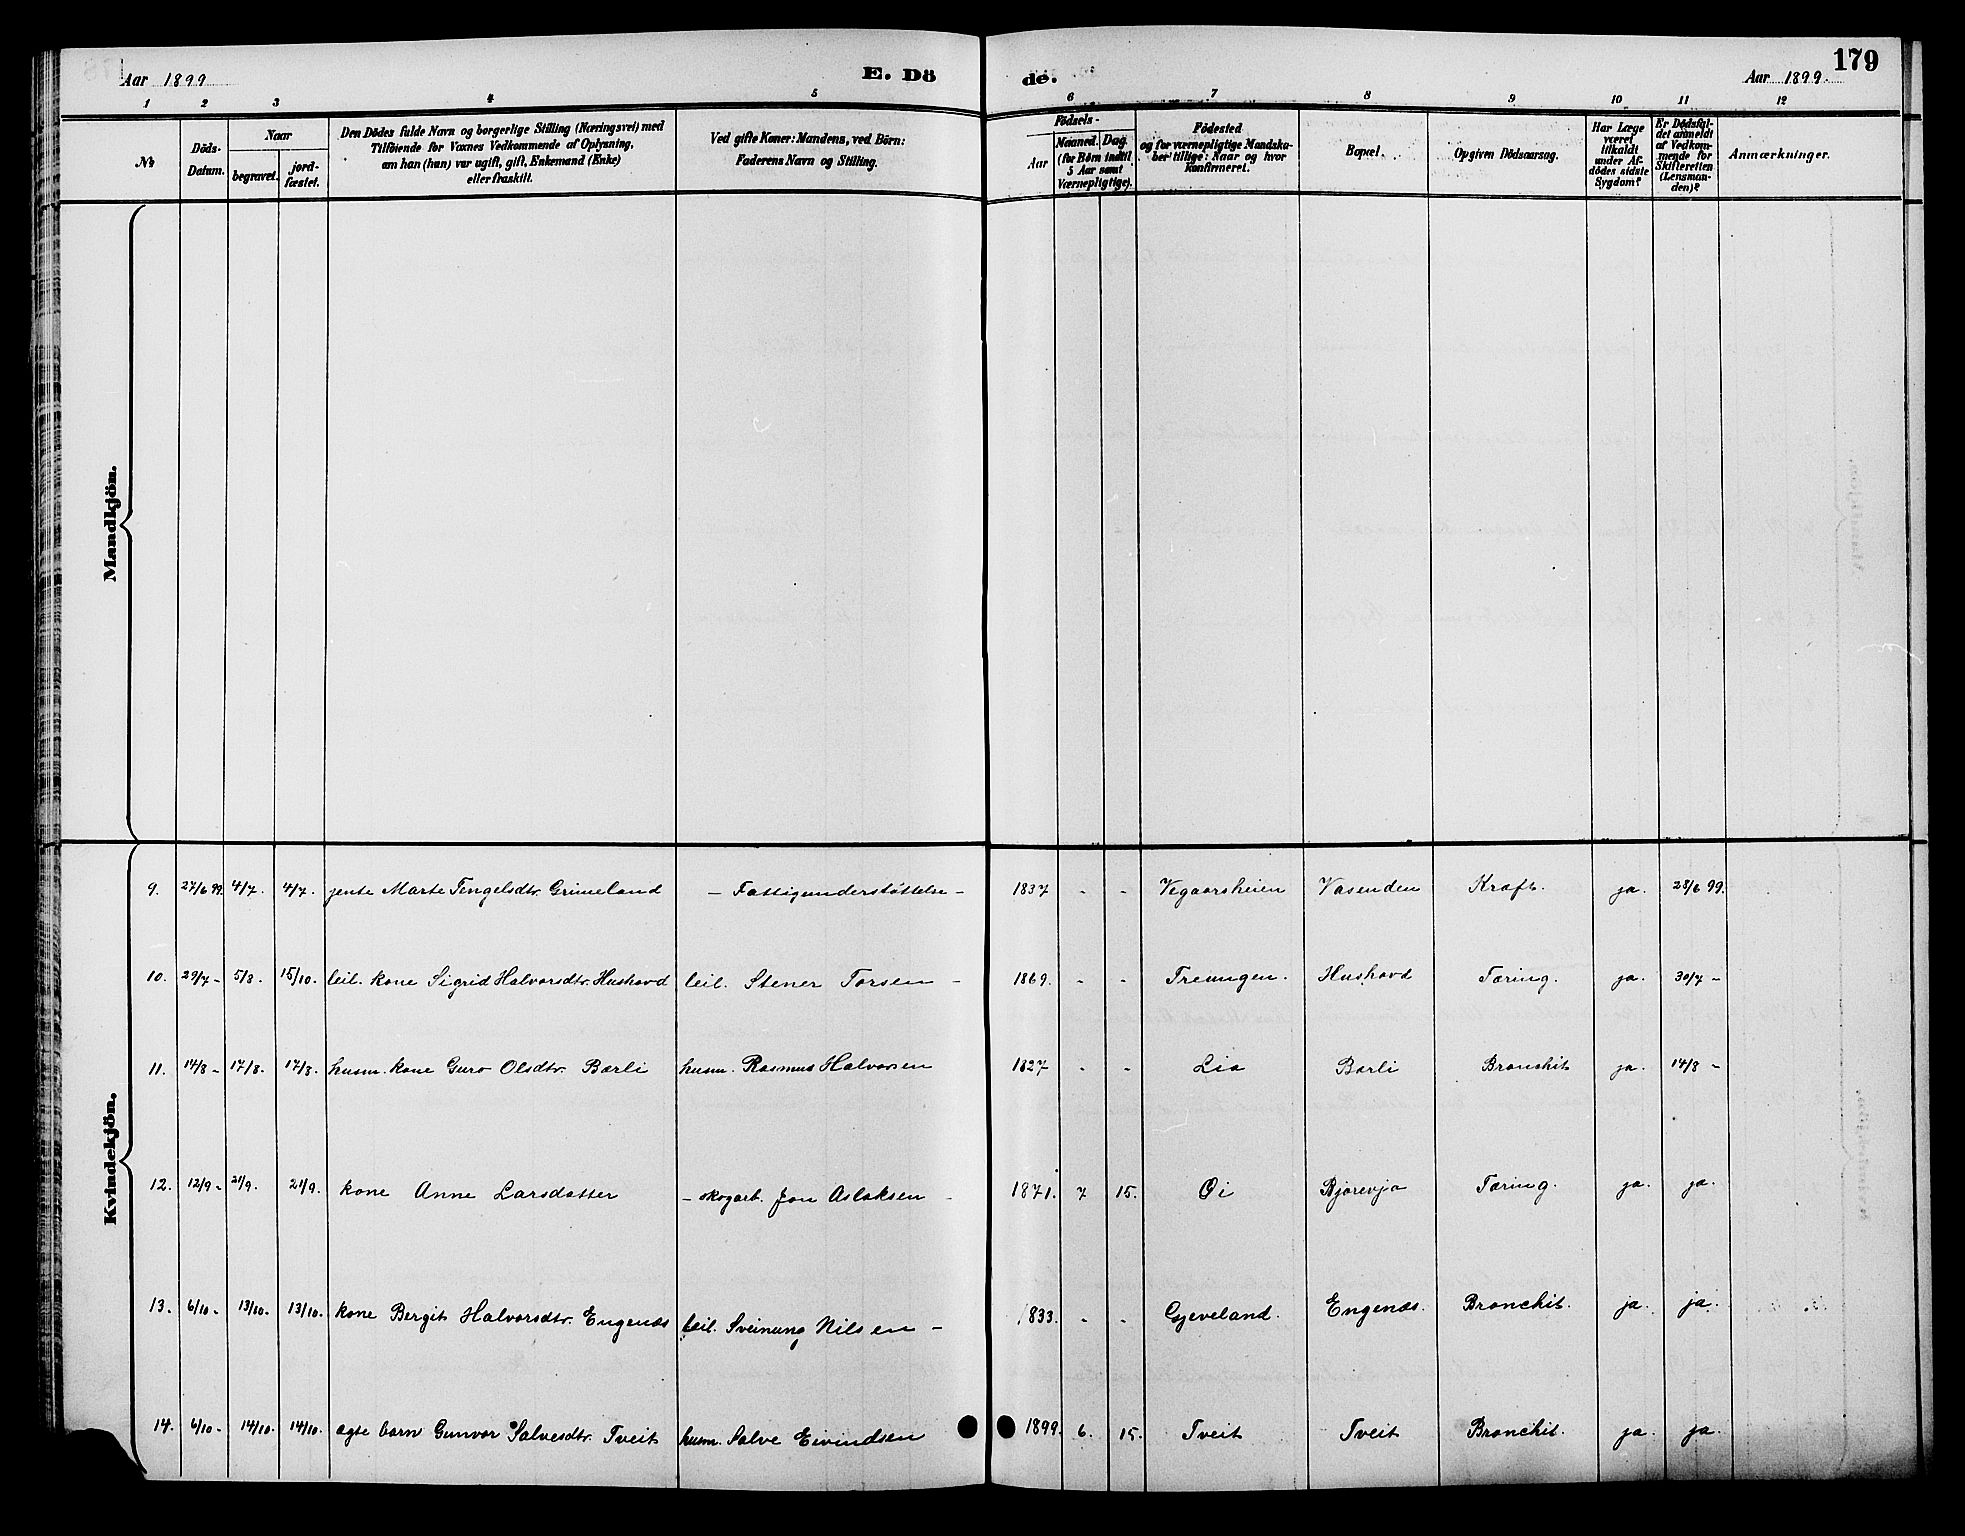 179
Aar 1899
E. Dö
de.
Aar 1899.
1 2 3 4 5 6 7 8 9 10 11 12
№
Döds-
Datum.
Naar
begravet.
jord-
fæstet.
Den Dödes fulde Navn og borgerlige Stilling (Næringsvei) med
Tilföiende for Voxnes Vedkommende af Oplysning,
om han (hun) var ugift, gift, Enkemand (Enke)
eller fraskilt.
Ved gifte Koner: Mandens, ved Börn:
Faderens Navn og Stilling.
Födsels-
Aar
Maaned. Dag.
(for Börn indtil
5 Aar samt
Værnepligtige).
Födested
og for værnepligtige Mandska-
ber tillige: Naar og hvor
Konfirmeret.
Bopæl.
Opgiven Dödsaarsag.
Har Læge
været
tilkaldt
under Af-
dödes sidste
Sygdom?
Er Dödsfal-
det anmeldt
af Vedkom-
mende for
Skifteretten
(Lensman-
den)?
Anmærkninger.
Mandkjön.
Kvindekjön.
9. 27/6 99. 4/7. 4/7. jente Marte Tengelsdtr. Grimeland – Fattigunderstøttelse – 1837 - - Vegaarsheien Vasenden Kræft. ja. 28/6 99.
10. 29/7 - 5/8. 15/10. leil. kone Sigrid Halvorsdtr. Hushovd leil. Stener Torsen – 1869. - - Treungen. Hushovd Tæring. ja. 30/7 -
11. 14/8 - 17/8. 17/8. husm. kone Guro Olsdtr. Barli husm. Rasmus Halvorsen 1827 - - Lia Barli Bronchit ja. 14/8 -
12. 12/9 - 21/9. 21/9. kone Anne Larsdatter – skogarb. Jon Aslaksen – 1871. 7 15. Øi Bjorevja Tæring. ja. ja.
13. 6/10 - 13/10. 13/10. kone Bergit Halvorsdtr. Engenæs leil. Sveinung Nilsen – 1833. - - Gjeveland. Engenæs. Bronchit. ja. ja.
14. 6/10 - 14/10. 14/10. ægte barn Gunvor Salvesdtr. Tveit husm. Salve Eivindsen 1899. 6. 15. Tveit Tveit Bronchit. ja. ja.